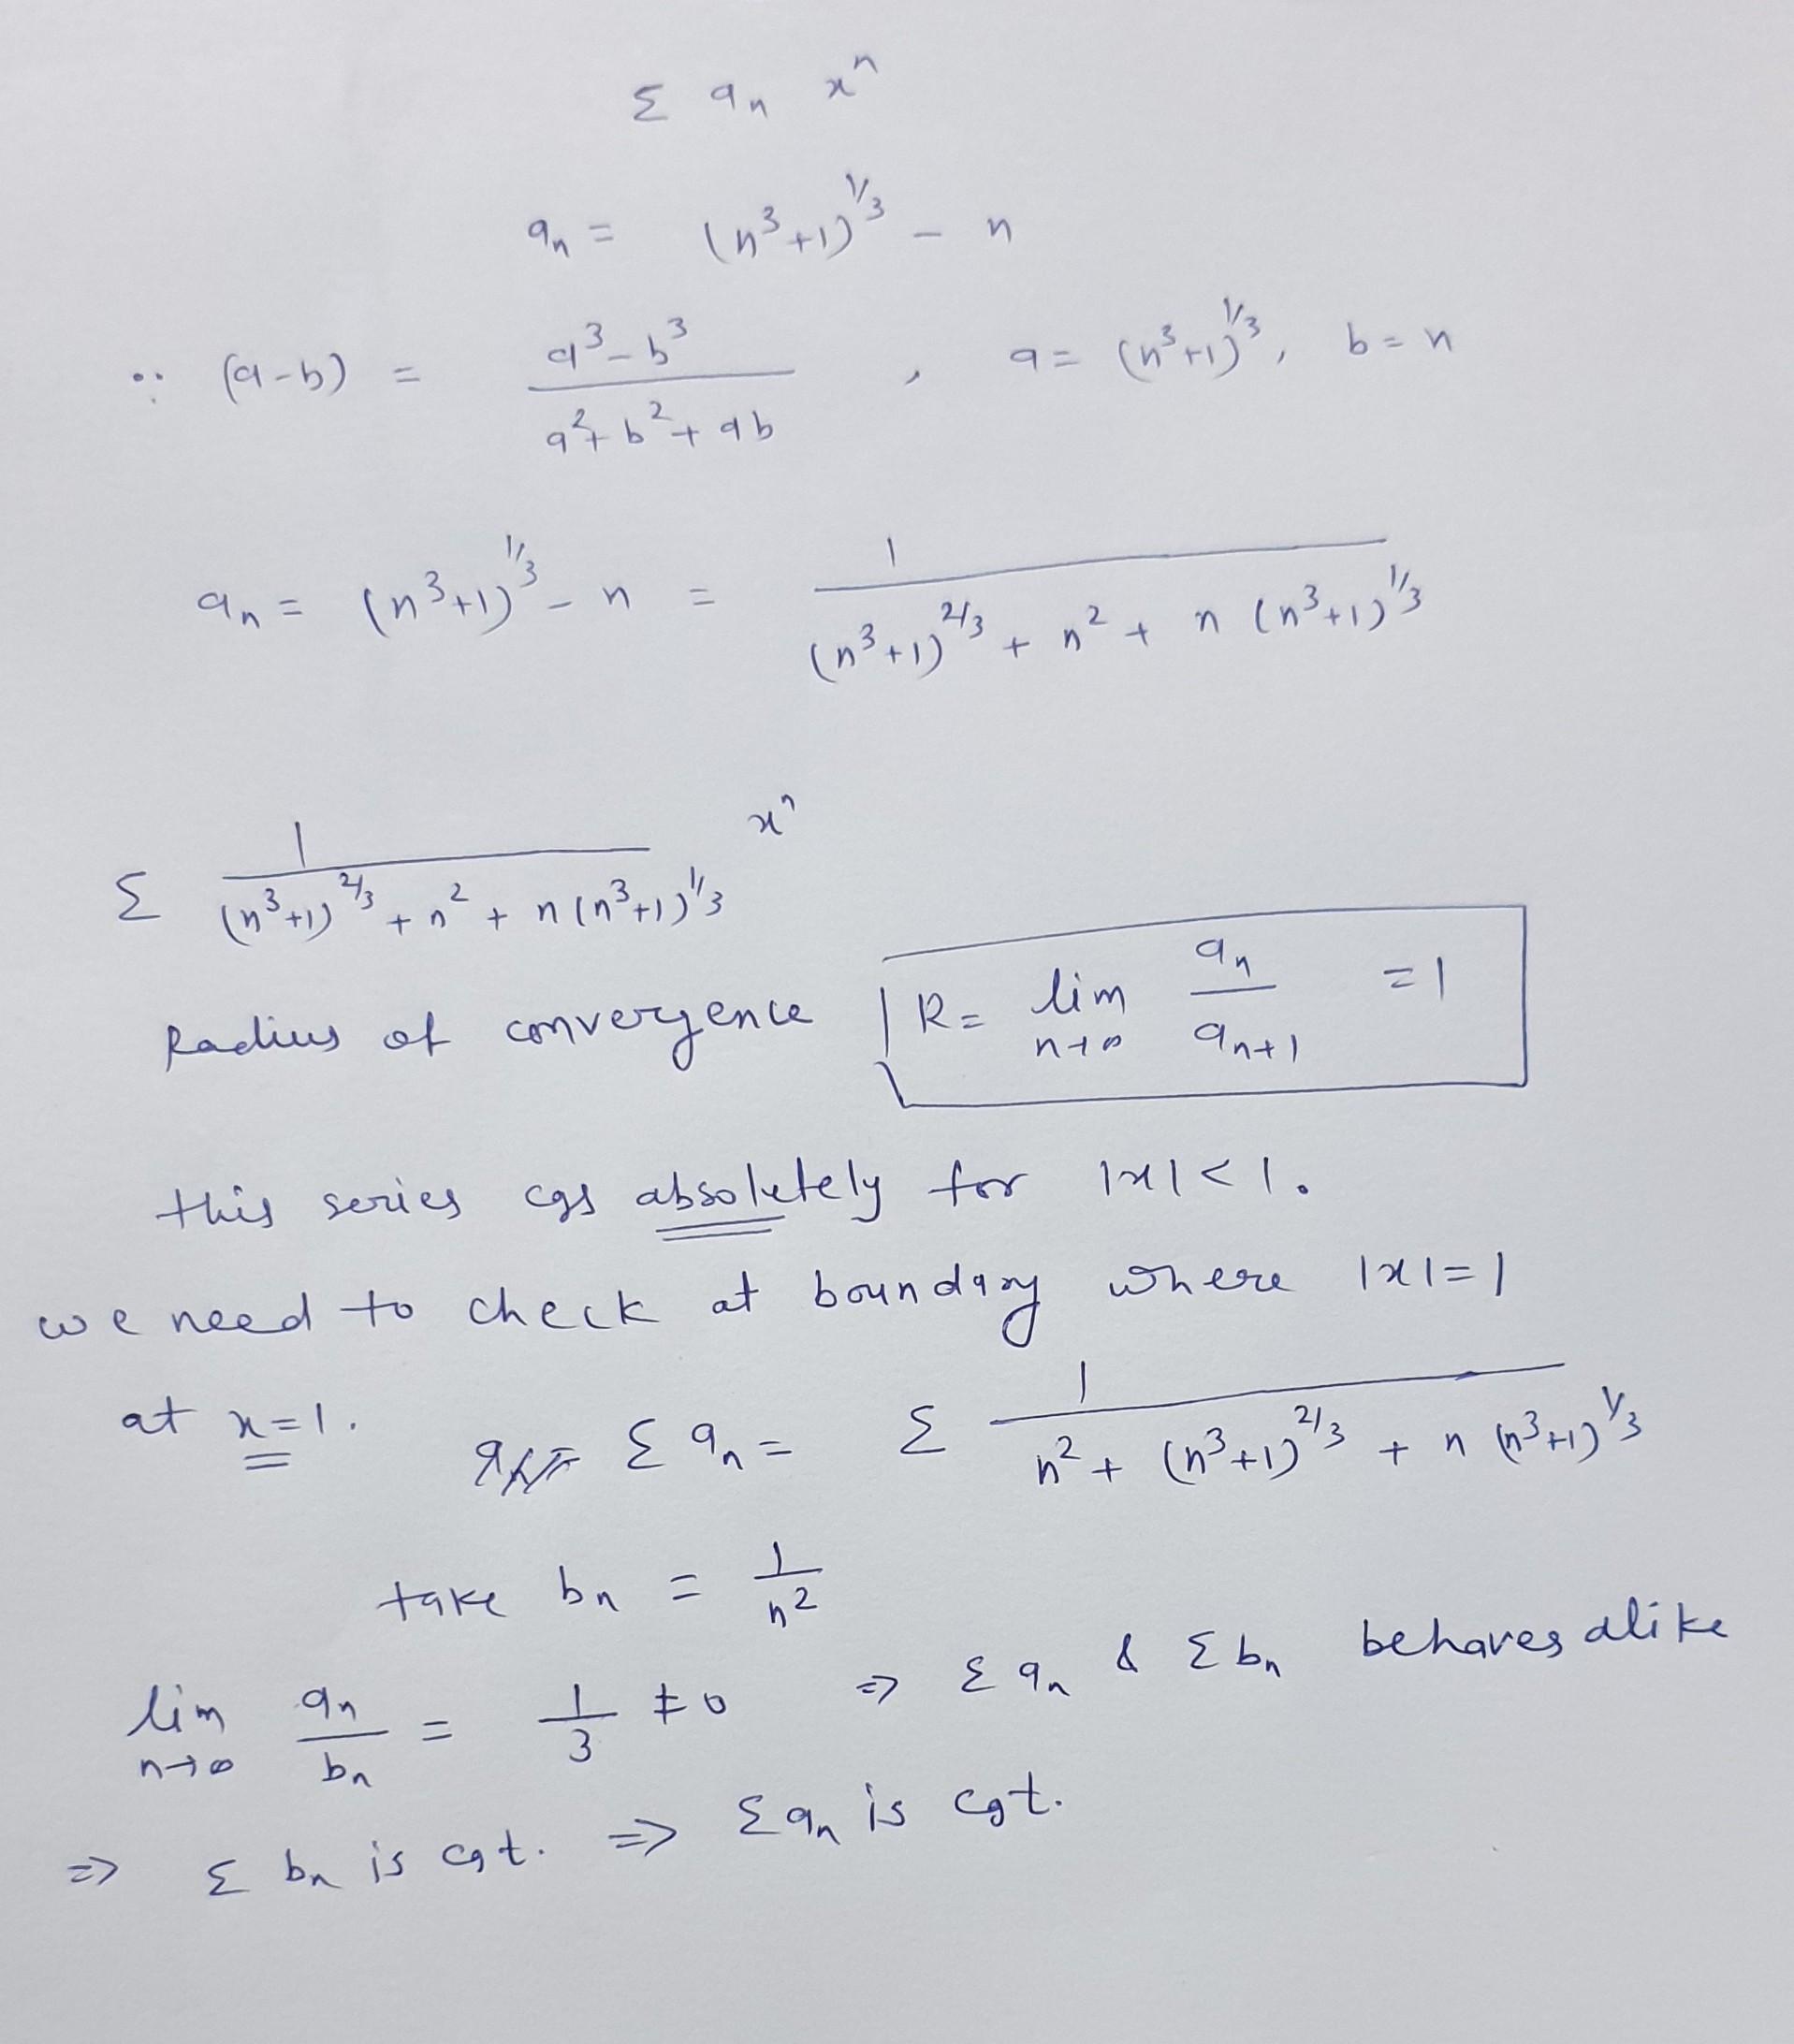 Σ aₙ xⁿ
aₙ = (n³+1)^1/3 - n
∵ (a-b) = (a³-b³)/(a²+b²+ab) , a = (n³+1)^1/3, b = n
aₙ = (n³+1)^1/3 - n = 1/((n³+1)^2/3 + n² + n (n³+1)^1/3)
Σ 1/((n³+1)^2/3 + n² + n (n³+1)^1/3) xⁿ
Radius of convergence R = lim n→∞ aₙ/aₙ₊₁ = 1
this series cgs absolutely for |x| < 1.
we need to check at boundary where |x| = 1
at x = 1. Σ aₙ = Σ 1/(n² + (n³+1)^2/3 + n (n³+1)^1/3)
take bₙ = 1/n²
lim n→∞ aₙ/bₙ = 1/3 ≠ 0 ⇒ Σ aₙ & Σ bₙ behaves alike
⇒ Σ bₙ is cgt. ⇒ Σ aₙ is cgt.